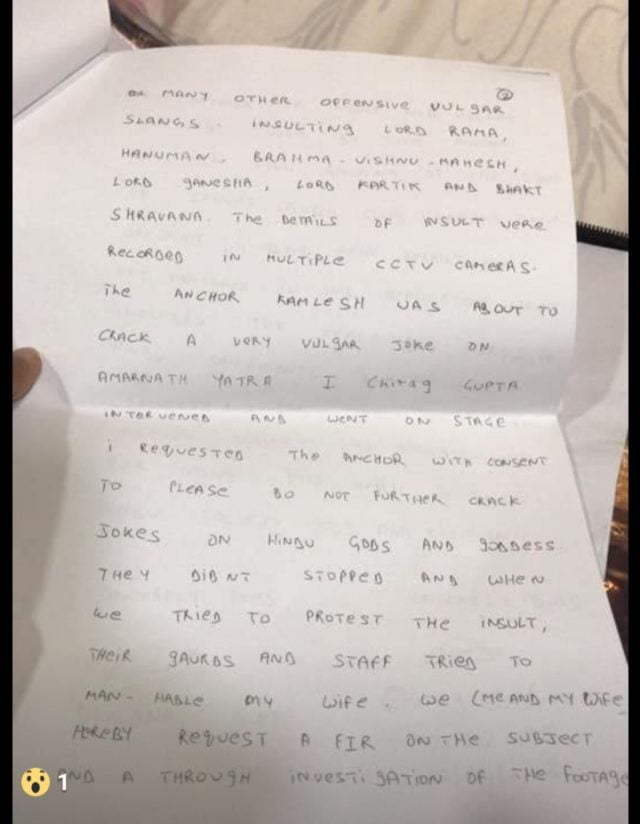 ②
MANY OTHER OFFENSIVE VULGAR
SLANGS. INSULTING LORD RAMA,
HANUMAN, BRAHMA - VISHNU - MAHESH,
LORD GANESHA, LORD KARTIK AND BHAKT
SHRAVANA. The DETAILS OF INSULT WERE
RECORDED IN MULTIPLE CCTV CAMERAS.
The ANCHOR KAMLESH WAS ABOUT TO
CRACK A VERY VULGAR JOKE ON
AMARNATH YATRA I Chirag GUPTA
INTERVENED AND WENT ON STAGE.
i REQUESTED The ANCHOR WITH CONSENT
TO PLEASE DO NOT FURTHER CRACK
JOKES ON HINDU GODS AND GODDESS.
THEY DIDNT STOPPED AND WHEN
we TRIED TO PROTEST THE INSULT,
THEIR GAURDS AND STAFF TRIED TO
MAN-HABLE MY WIFE. WE (ME AND MY WIFE
HEREBY REQUEST A FIR ON THE SUBJECT
AND A THROUGH INVESTIGATION OF THE FOOTAGE
1